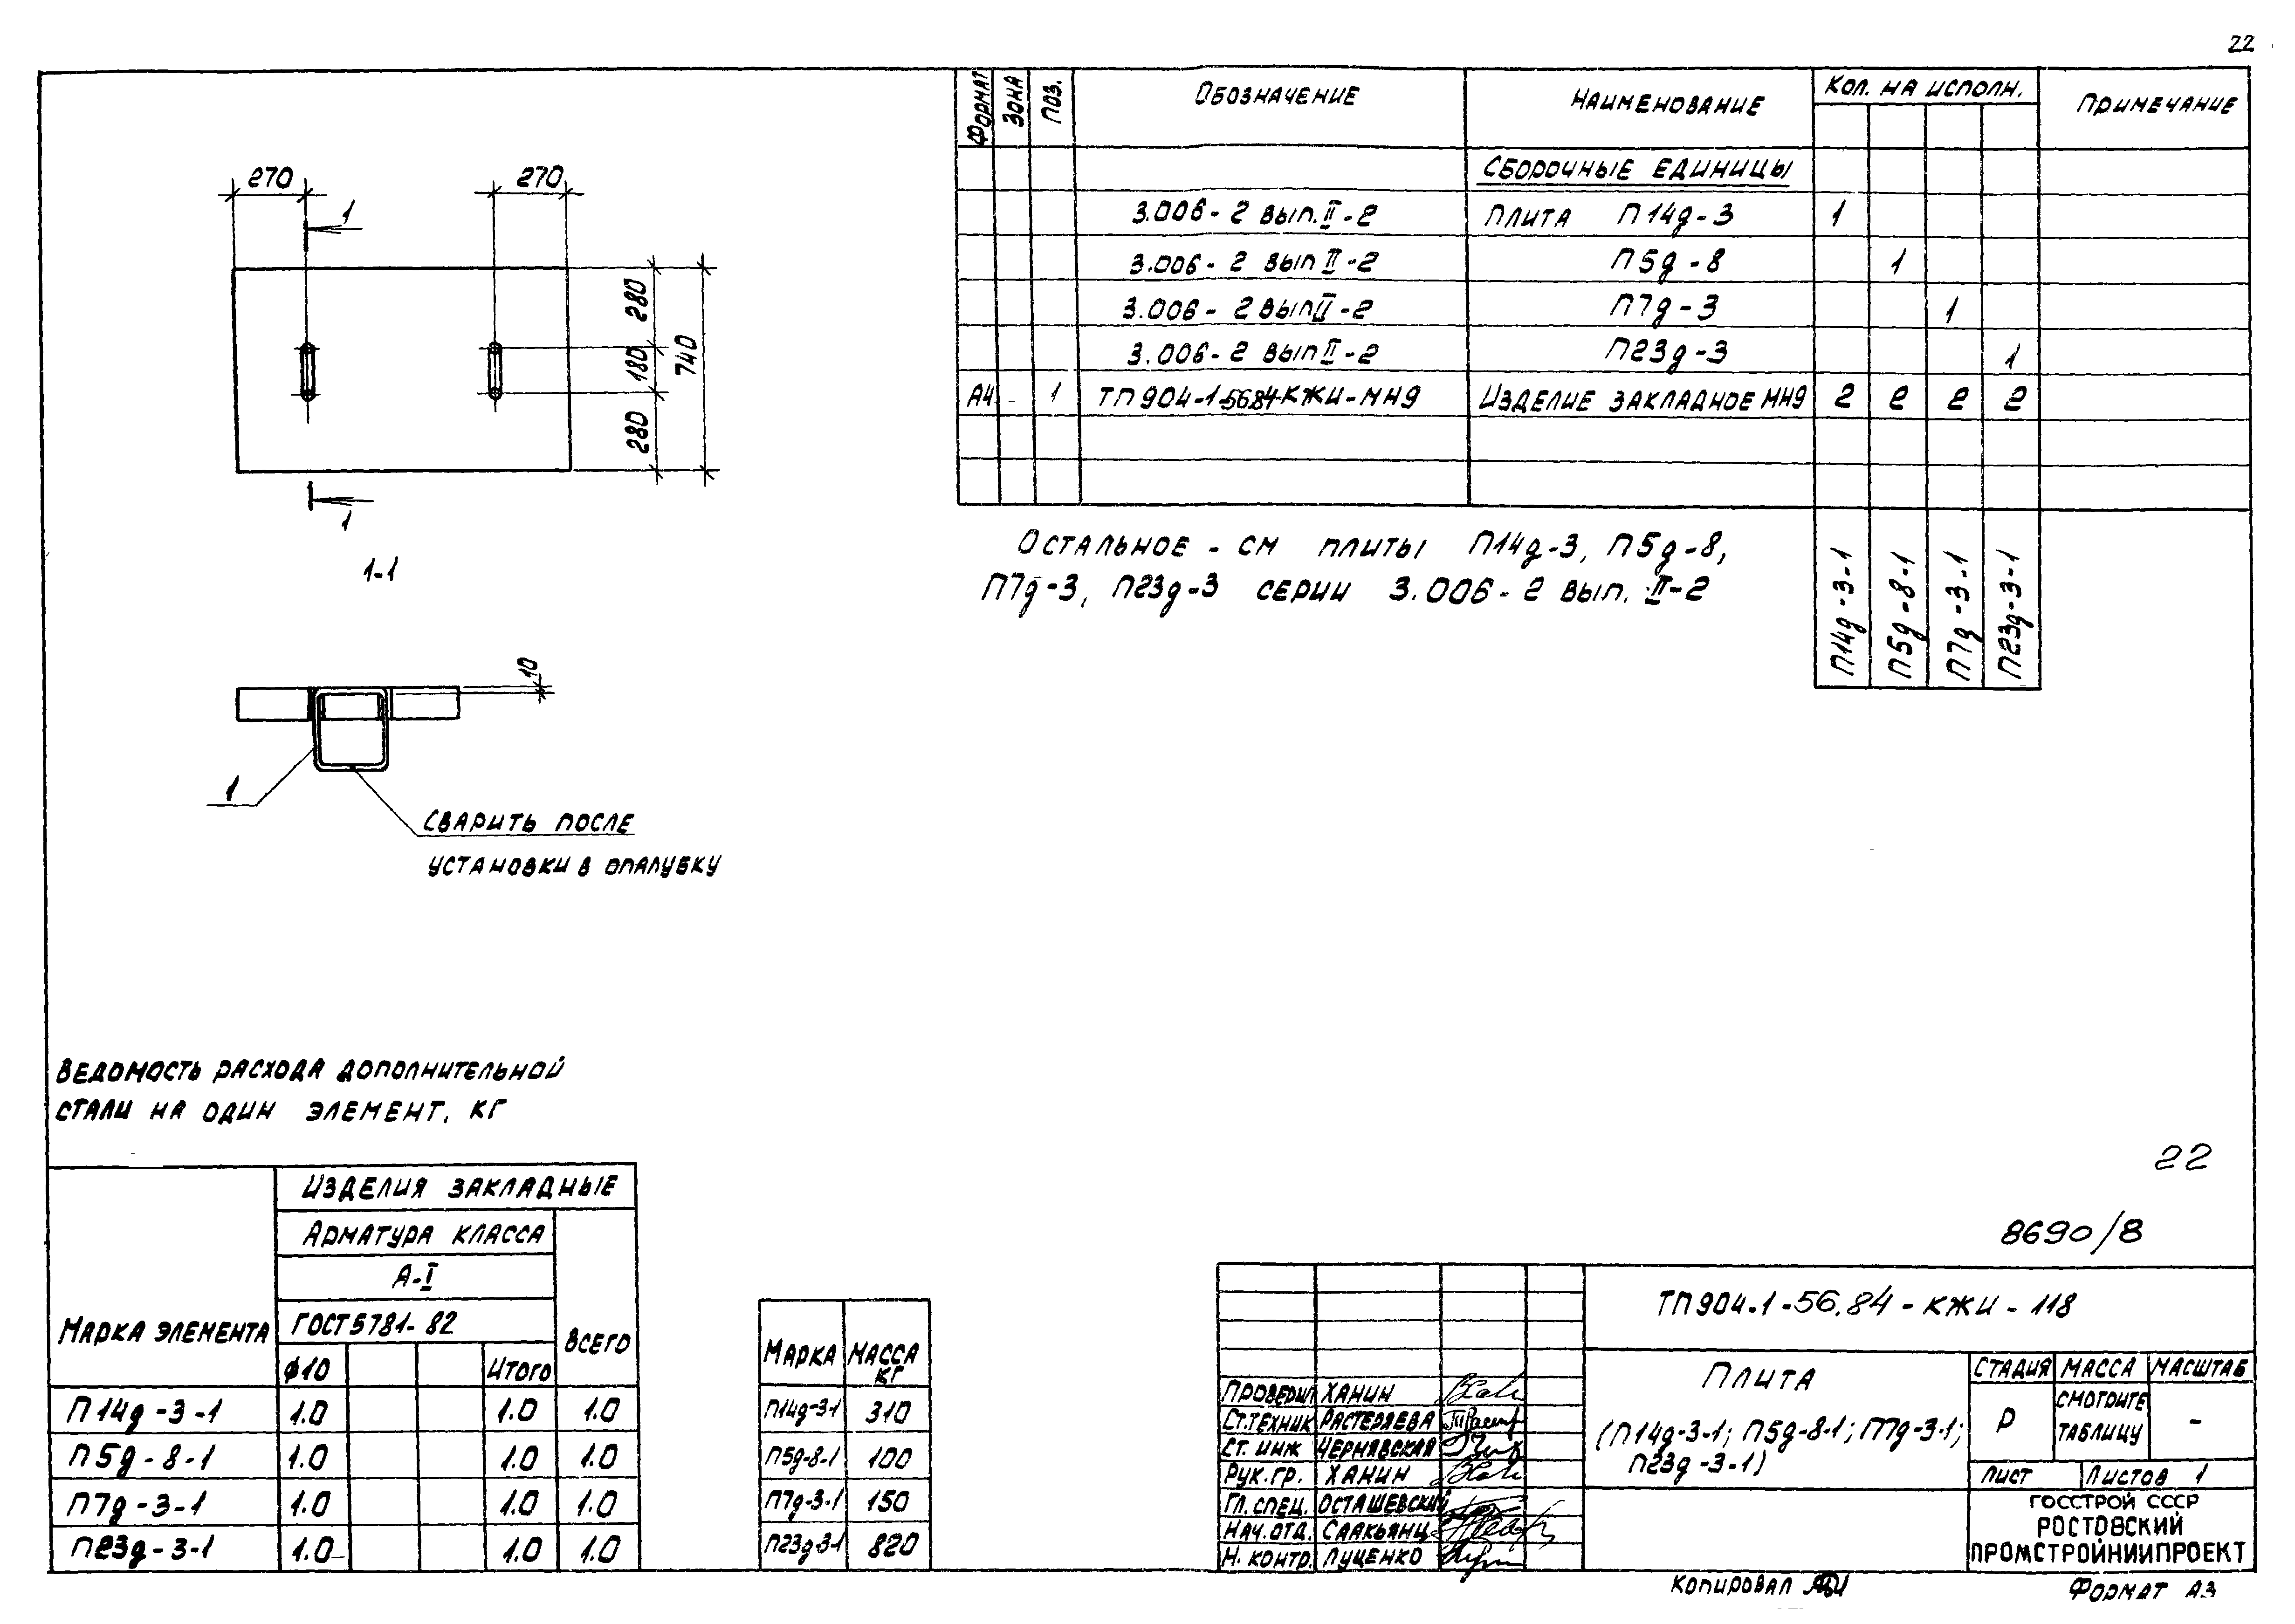 22
270
270
1
280
180
280
740
1
1-1
10
1
СВАРИТЬ ПОСЛЕ
УСТАНОВКИ В ОПАЛУБКУ
ФОРМАТ ЗОНА ПОЗ. ОБОЗНАЧЕНИЕ НАИМЕНОВАНИЕ КОЛ. НА ИСПОЛН. ПРИМЕЧАНИЕ
СБОРОЧНЫЕ ЕДИНИЦЫ
3.006-2 ВЫП.II-2 ПЛИТА П14д-3 1
3.006-2 ВЫП II-2 П5д-8 1
3.006-2 ВЫП II-2 П7д-3 1
3.006-2 ВЫП II-2 П23д-3 1
А4 - 1 ТП904-1-56.84-КЖИ-МН9 ИЗДЕЛИЕ ЗАКЛАДНОЕ МН9 2 2 2 2
П14д-3-1
П5д-8-1
П7д-3-1
П23д-3-1
ОСТАЛЬНОЕ - СМ ПЛИТЫ П14д-3, П5д-8,
П7д-3, П23д-3 СЕРИИ 3.006-2 ВЫП. II-2
ВЕДОМОСТЬ РАСХОДА ДОПОЛНИТЕЛЬНОЙ
СТАЛИ НА ОДИН ЭЛЕМЕНТ, КГ
МАРКА ЭЛЕМЕНТА
ИЗДЕЛИЯ ЗАКЛАДНЫЕ
АРМАТУРА КЛАССА
А-I
ГОСТ 5781-82
ВСЕГО
ϕ10 ИТОГО
П14д-3-1 1.0 1.0 1.0
П5д-8-1 1.0 1.0 1.0
П7д-3-1 1.0 1.0 1.0
П23д-3-1 1.0 1.0 1.0
МАРКА МАССА
КГ
П14д-3-1 310
П5д-8-1 100
П7д-3-1 150
П23д-3-1 820
22
8690/8
ТП904-1-56.84-КЖИ-118
ПРОВЕРИЛ ХАНИН
СТ.ТЕХНИК РАСТЕРЯЕВА
СТ. ИНЖ ЧЕРНЯВСКАЯ
РУК.ГР. ХАНИН
ГЛ.СПЕЦ. ОСТАШЕВСКИЙ
НАЧ.ОТД. СААКЬЯНЦ
Н. КОНТР. ЛУЦЕНКО
ПЛИТА
(П14д-3-1; П5д-8-1; П7д-3-1;
П23д-3-1)
СТАДИЯ МАССА МАСШТАБ
Р СМОТРИТЕ
ТАБЛИЦУ -
ЛИСТ ЛИСТОВ 1
ГОССТРОЙ СССР
РОСТОВСКИЙ
ПРОМСТРОЙНИИПРОЕКТ
КОПИРОВАЛ
ФОРМАТ А3